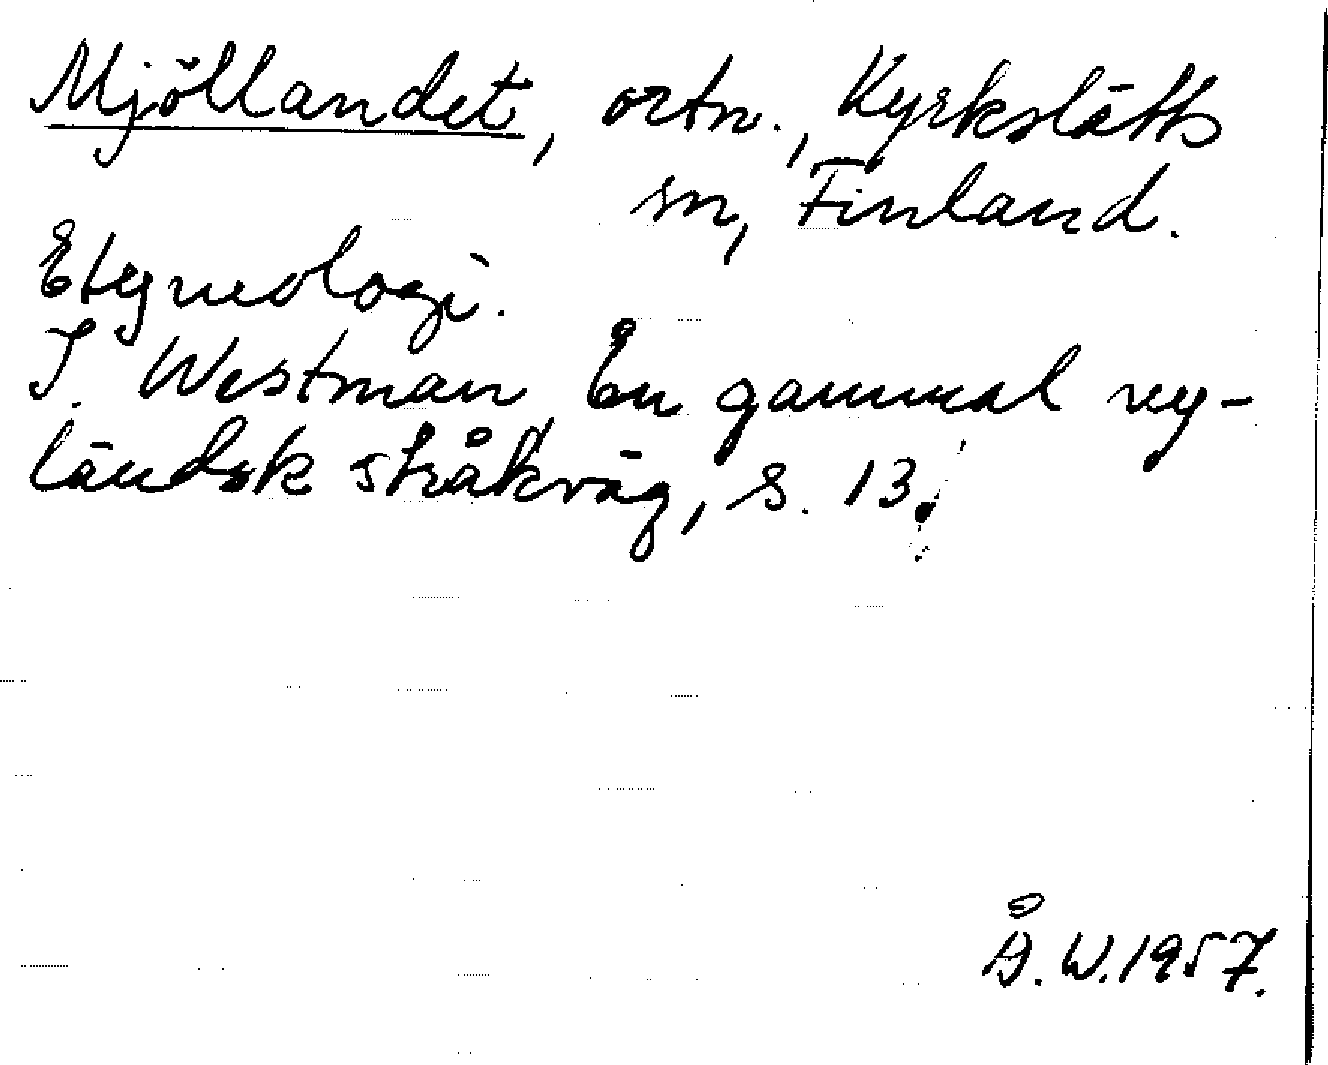 Mjöllandet, ortn., Kyrkslätts
sn, Finland.
Etymologi.
I. Westman, En gammal ny-
ländsk stråkväg, s. 13.
Å. W. 1957.